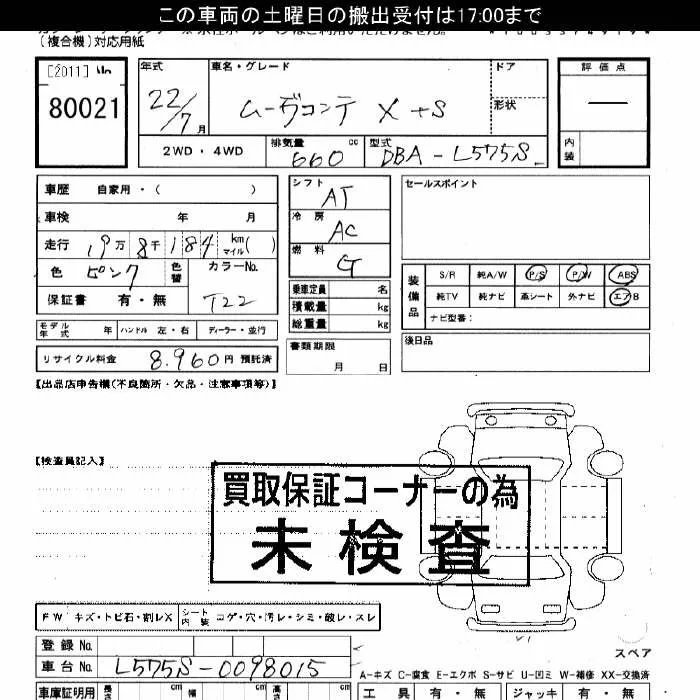 この車両の土曜日の搬出受付は17:00まで
(複合機)対応用紙
[2011] No
80021
年式
22/7月
車名・グレード
ムーヴコンテ X +S
ドア
形状
評価点
—
内装
2WD・4WD
排気量
660 cc
型式
DBA-L575S
車歴 自家用・( )
車検 年 月
走行 19万8千184 km マイル( )
色 ピンク
色替
カラーNo.
T22
保証書 有・無
モデル年式 年 ハンドル 左・右 ディーラー・並行
リサイクル料金 8,960円 預託済
シフト
AT
冷房
AC
燃料
G
乗車定員 名
積載量 kg
総重量 kg
書類期限
月 日
セールスポイント
装備品
S/R 純A/W P/S P/W ABS
純TV 純ナビ 革シート 外ナビ エアB
ナビ型番:
後日品
【出品店申告欄(不良箇所・欠品・注意事項等)】
【検査員記入】
買取保証コーナーの為
未検査
FW キズ・トビ石・割レX
シート内装 コゲ・穴・汚レ・シミ・破レ・スレ
登録No.
車台No. L575S-0098015
スペア
A-キズ C-腐食 E-エクボ S-サビ U-凹ミ W-補修 XX-交換済
車庫証明用 長さ cm 幅 cm 高さ cm
工具 有・無 ジャッキ 有・無